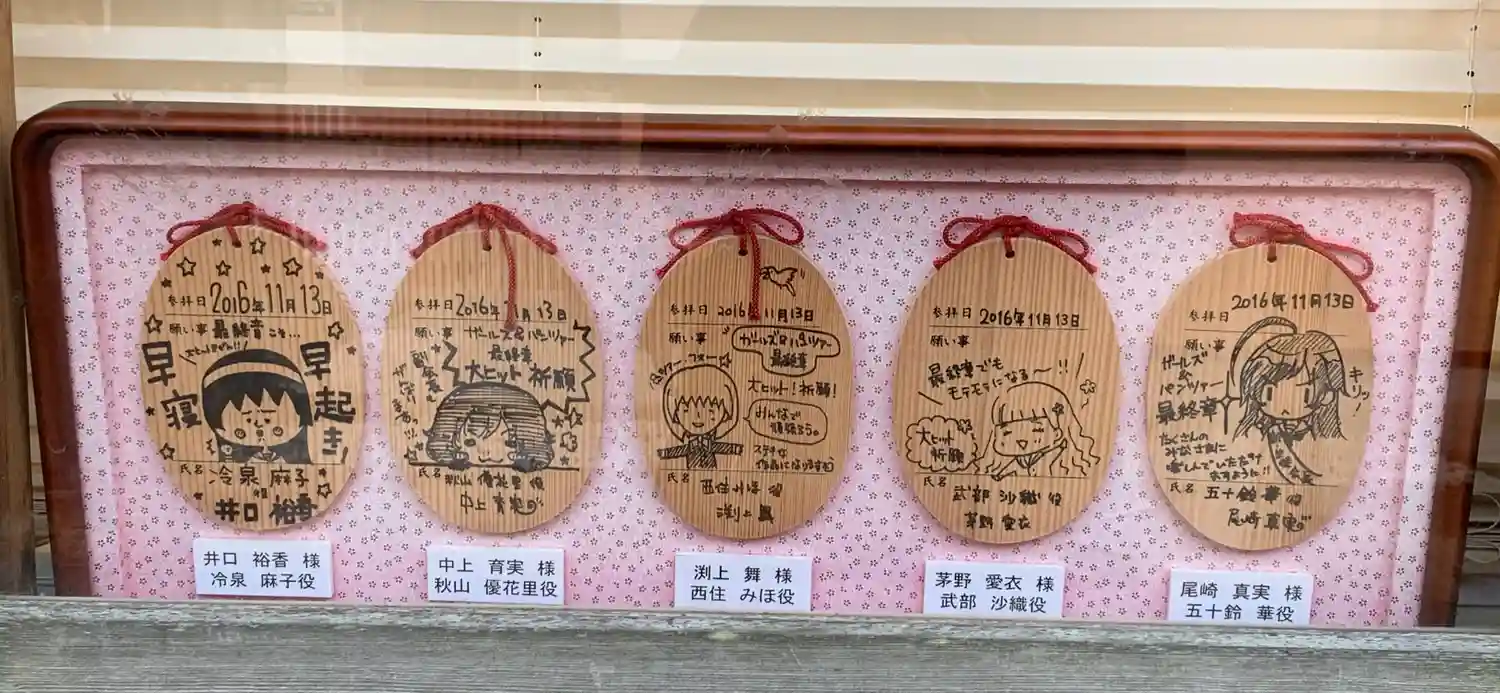 参拝日 2016年11月13日
願い事 最終章こそ…
大ヒットぜよ!!
早寝
早起き
氏名 冷泉 麻子
役
井口 裕香
井口 裕香 様
冷泉 麻子役
参拝日 2016年11月13日
願い事 ガールズ&パンツァー
最終章
大ヒット祈願
氏名 秋山 優花里 役
中上 育実
中上 育実 様
秋山 優花里役
参拝日 2016年11月13日
願い事
ガールズ&パンツァー
最終章
パンツァー・フォー
大ヒット!祈願!
みんなで
頑張ろう。
ステキな
作品になりますように
氏名 西住みほ 役
渕上 舞
渕上 舞 様
西住 みほ役
参拝日 2016年11月13日
願い事
最終章でも
モテモテになる〜!!
大ヒット
祈願
氏名 武部 沙織 役
茅野 愛衣
茅野 愛衣 様
武部 沙織役
参拝日 2016年11月13日
願い事
ガールズ
&
パンツァー
最終章
キリッ!
たくさんの
みなさまに
楽しんでいただけ
ますように!!
氏名 五十鈴 華 役
尾崎 真実
尾崎 真実 様
五十鈴 華役